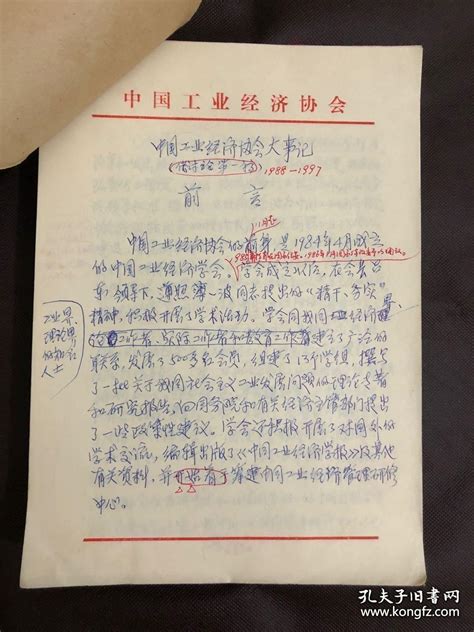 中国工业经济协会
中国工业经济协会大事记
(征求意见第一稿) 1988—1997
前言
中国工业经济协会的前身是1984年4月成立
的中国工业经济学会,学会成立以后,在会长吕
东领导下,遵照薄一波同志提出的“精干、务实”
精神,积极开展了学术活动。学会同我国经济
工作者、实际工作者和教育工作者建立了广泛的
联系,发展了500多名会员,组建了13个学组,撰写
了一批关于我国社会主义工业发展问题的理论专著
和研究报告,向国务院和有关经济主管部门提出
了一些政策性建议。学会还积极开展了对国外的
学术交流,编辑出版了《中国工业经济学报》及其他
有关资料,并开始着手筹建中国工业经济管理研修
中心。
工业界、
理论界
的知名
人士
孔夫子旧书网
www.kongfz.com